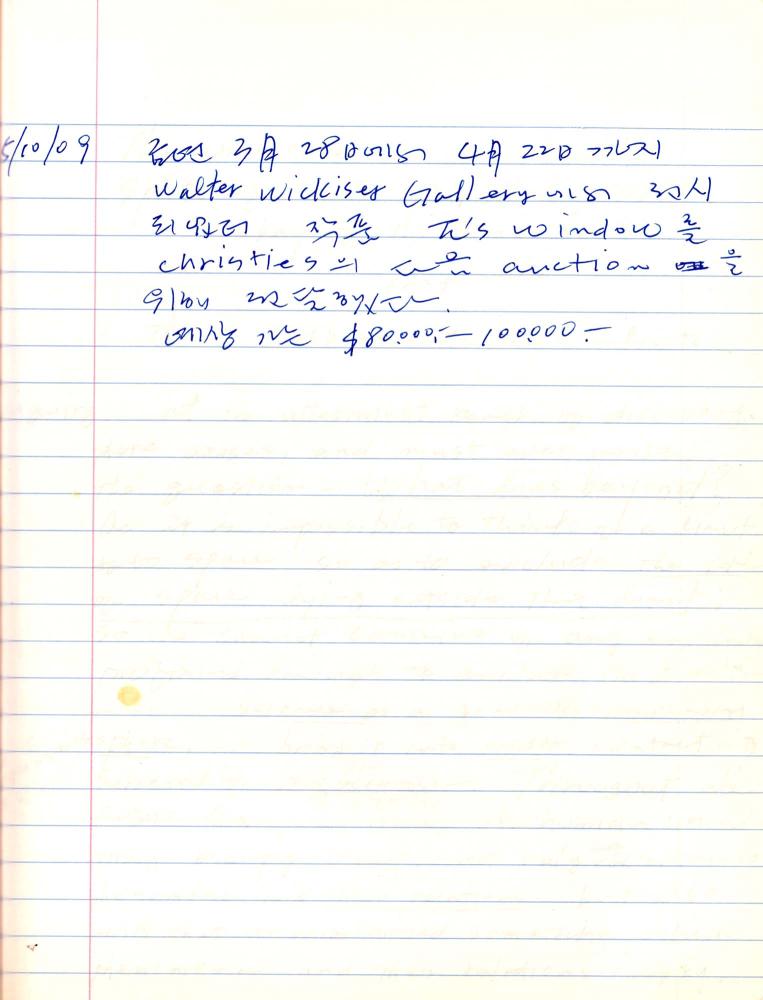 5/10/09 금년 3月 28日에서 4月 22日 까지
Walter Wickiser Gallery에서 전시
되었던 작품 window를
christies의 다음 auction 을
위해 전달했다.
예상 가는 $80.000.— 100.000.—